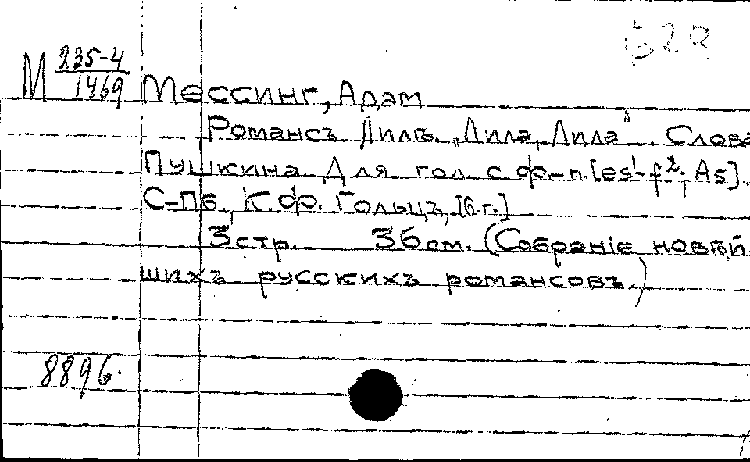 М 235-4
1469
Мессинг, Адам
Романсъ Лилъ. „Лила, Лила". Слова
Пушкина. Для гол. с ф-п. [es¹-f²; As].
С-Пб., К.Ф. Гольцъ, [б.г.]
3 стр. 36 см. (Собранiе новѣй
шихъ русскихъ романсовъ.)
8896.